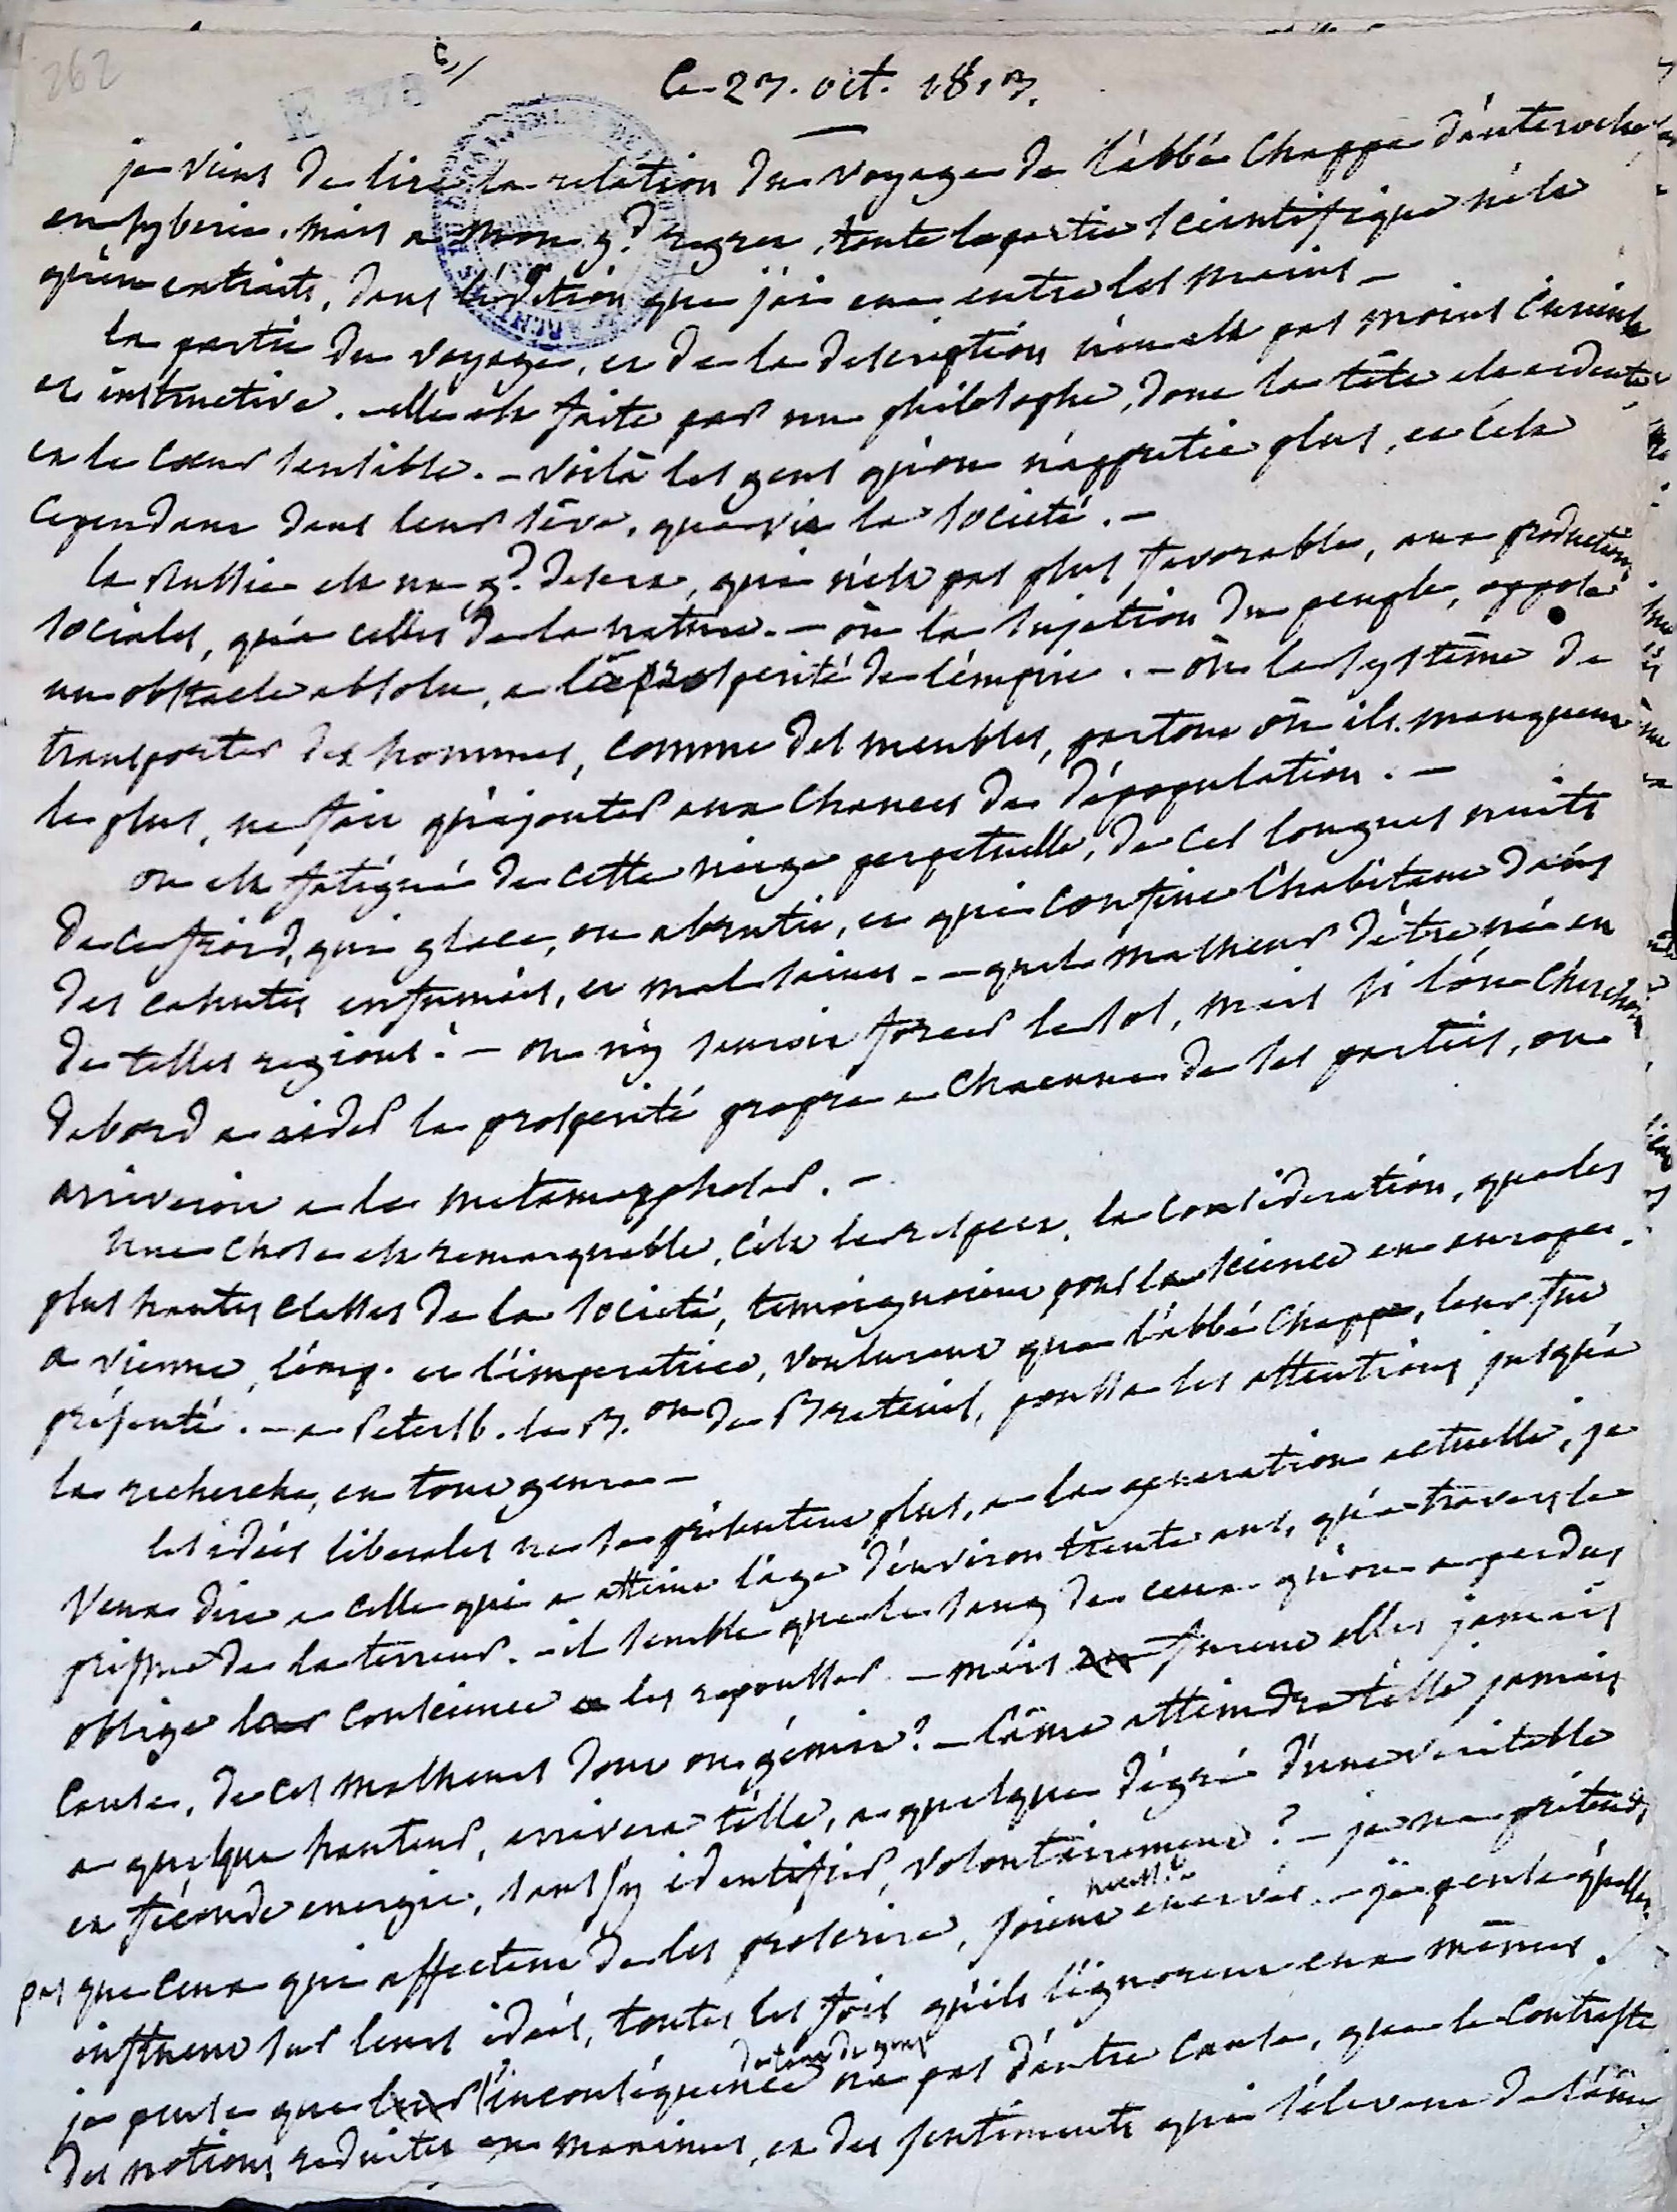 262
le 27. oct. 1813.
je viens de lire la relation du voyage de l'abbé Chappe d'auteroche
en sybérie. mais a mon gd regret, toute la partie scientifique n'est
qu'en extraits, dans l'édition que j'ai eue entre les mains -
la partie du voyage, et de la description n'en est pas moins curieuse
et instructive. elle est faite par un philosophe, dont la tête est ardente,
et le coeur sensible. - voilà les gens qu'on n'apprétie plus, et c'est
cependant dans leur sève, que vit la société. -
la Russie est un gd desert, qui n'est pas plus favorable, aux productions
sociales, qu'a celles de la nature. - où la sujetion du peuple, oppose
un obstacle absolu, a la prosperité de l'empire. - où le système de
transporter des hommes, comme des meubles, partout où ils manquent
le plus, ne fait qu'ajouter aux chances de dépopulation. -
on est fatigué de cette neige perpetuelle, de ces longues nuits
de ce froid, qui glace, ou abrutit, et qui confine l'habitant dans
des cahutes enfumées, et mal saines - quel malheur d'être né en
de telles regions ! - on n'y sauroit forcer le sol, mais si l'on cherchoit
d'abord a aider la prosperité propre a chacune de ses parties, on
arriveroit a les metamorphoser. -
une chose est remarquable, c'est le respect, la consideration, que les
plus hautes classes de la société, temoignoient pour la science en europe.
a vienne, l'emp. et l'imperatrice, voulurent que l'abbé Chappe, leur fut
présenté. - a Petersb. le B.on de Breteuil, poussa les attentions jusqu'à
la recherche, en tout genre -
les idées liberales ne se présentent plus, a la generation actuelle, je
veux dire a celle qui a atteint l'age d'environ trente ans, qu'a travers le
prisme de la terreur. - il semble que le sang de ceux qu'on a perdus
oblige leur conscience a les repousser - mais furent elles jamais
cause, de ces malheurs dont on gémit ? - l'âme atteindra t'elle jamais
a quelque hauteur, arrivera t'elle, a quelque dégré d'une veritable
et féconde energie, sans s'y identifier, volontairement ? - je ne prétends
pas que ceux qui affectent de les proscrire, soient enervés. - je pense qu'elles
influent sur leurs idées, toutes les fois qu'ils l'ignorent eux mêmes.
je pense que l'inconséquence de tant de gens n'a pas d'autre cause, que le contraste
des notions reduites en maximes, et des sentiments qui s'elevent de l'âme